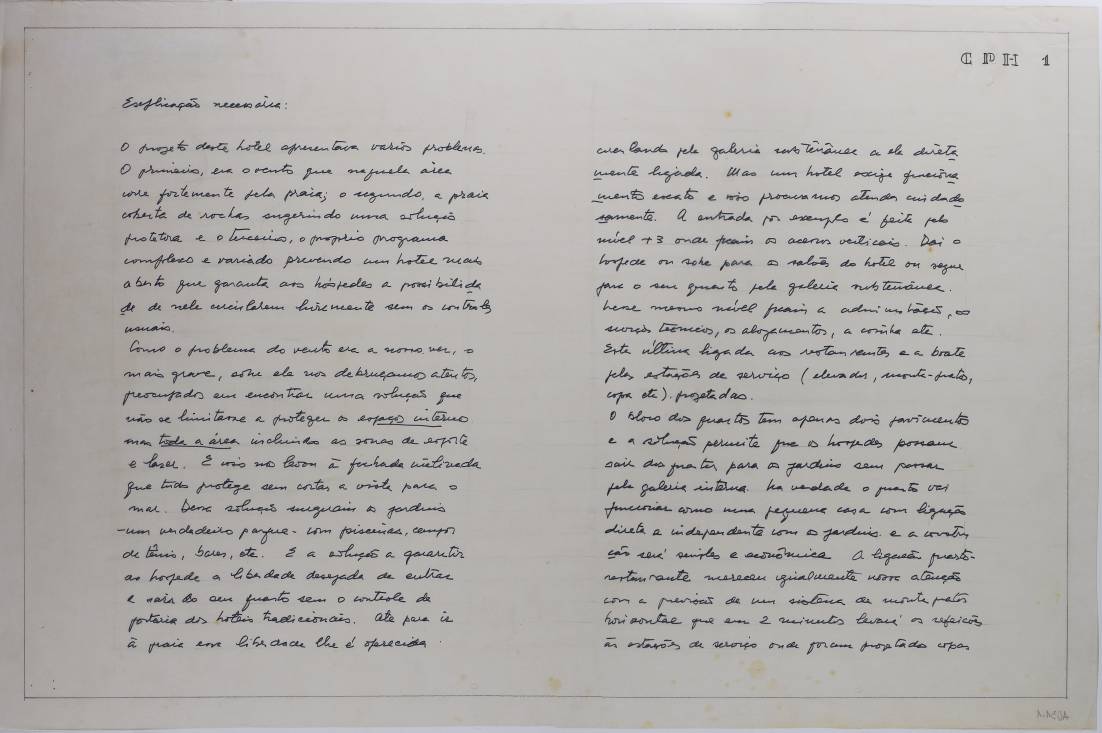 CPH 1
Explicação necessária:
O projeto deste hotel apresentava varios problemas.
O primeiro, era o vento que naquela área
corre fortemente pela praia; o segundo, a praia
coberta de rochas sugerindo uma solução
protetora e o terceiro, o proprio programa
complexo e variado prevendo um hotel mais
aberto que garanta aos hóspedes a possibilida
de de nele circularem livremente sem os controles
usuais.
Como o problema do vento era a nosso ver, o
mais grave, sobre ele nos debruçamos atentos,
preocupados em encontrar uma solução que
não se limitasse a proteger os espaço interno
mas toda a área incluindo as zonas de esporte
e laser. E isso nos levou à fachada inclinada
que tudo protege sem cortar a vista para o
mar. Dessa solução surgiram os jardins
-um verdadeiro parque- com piscinas, campos
de tênis, bares, etc. E a solução a garantir
ao hospede a liberdade desejada de entrar
e sair do seu quarto sem o controle da
portaria dos hoteis tradicionais. Ate para ir
à praia essa liberdade lhe é oferecida
cruzando pela galeria subterrânea a ele direta
mente ligada. Mas um hotel exige funciona
mento exato e isso procuramos atender cuidado
samente. A entrada por exemplo é feita pelo
nivel +3 onde ficam os acessos verticais. Dai o
hospede ou sobe para os salões do hotel ou segue
para o seu quarto pela galeria subterrânea.
Nesse mesmo nivel ficam a administração, os
serviços técnicos, os alojamentos, a cozinha etc.
Esta última ligada aos restaurantes e a boate
pelas estações de serviço (elevador, monte-pratos,
copa etc). projetadas.
O bloco dos quartos tem apenas dois pavimentos
e a solução permite que os hospedes possam
sair dos quartos para os jardins sem passar
pela galeria interna. Na verdade o quarto vai
funcionar como uma pequena casa com ligação
direta e independente com os jardins e a constru
ção será simples e econômica. A ligação quarto-
restaurante mereceu igualmente nossa atenção
com a previsão de um sistema de monte pratos
horizontal que em 2 minutos levará as refeições
às estações de serviço onde foram projetadas copas